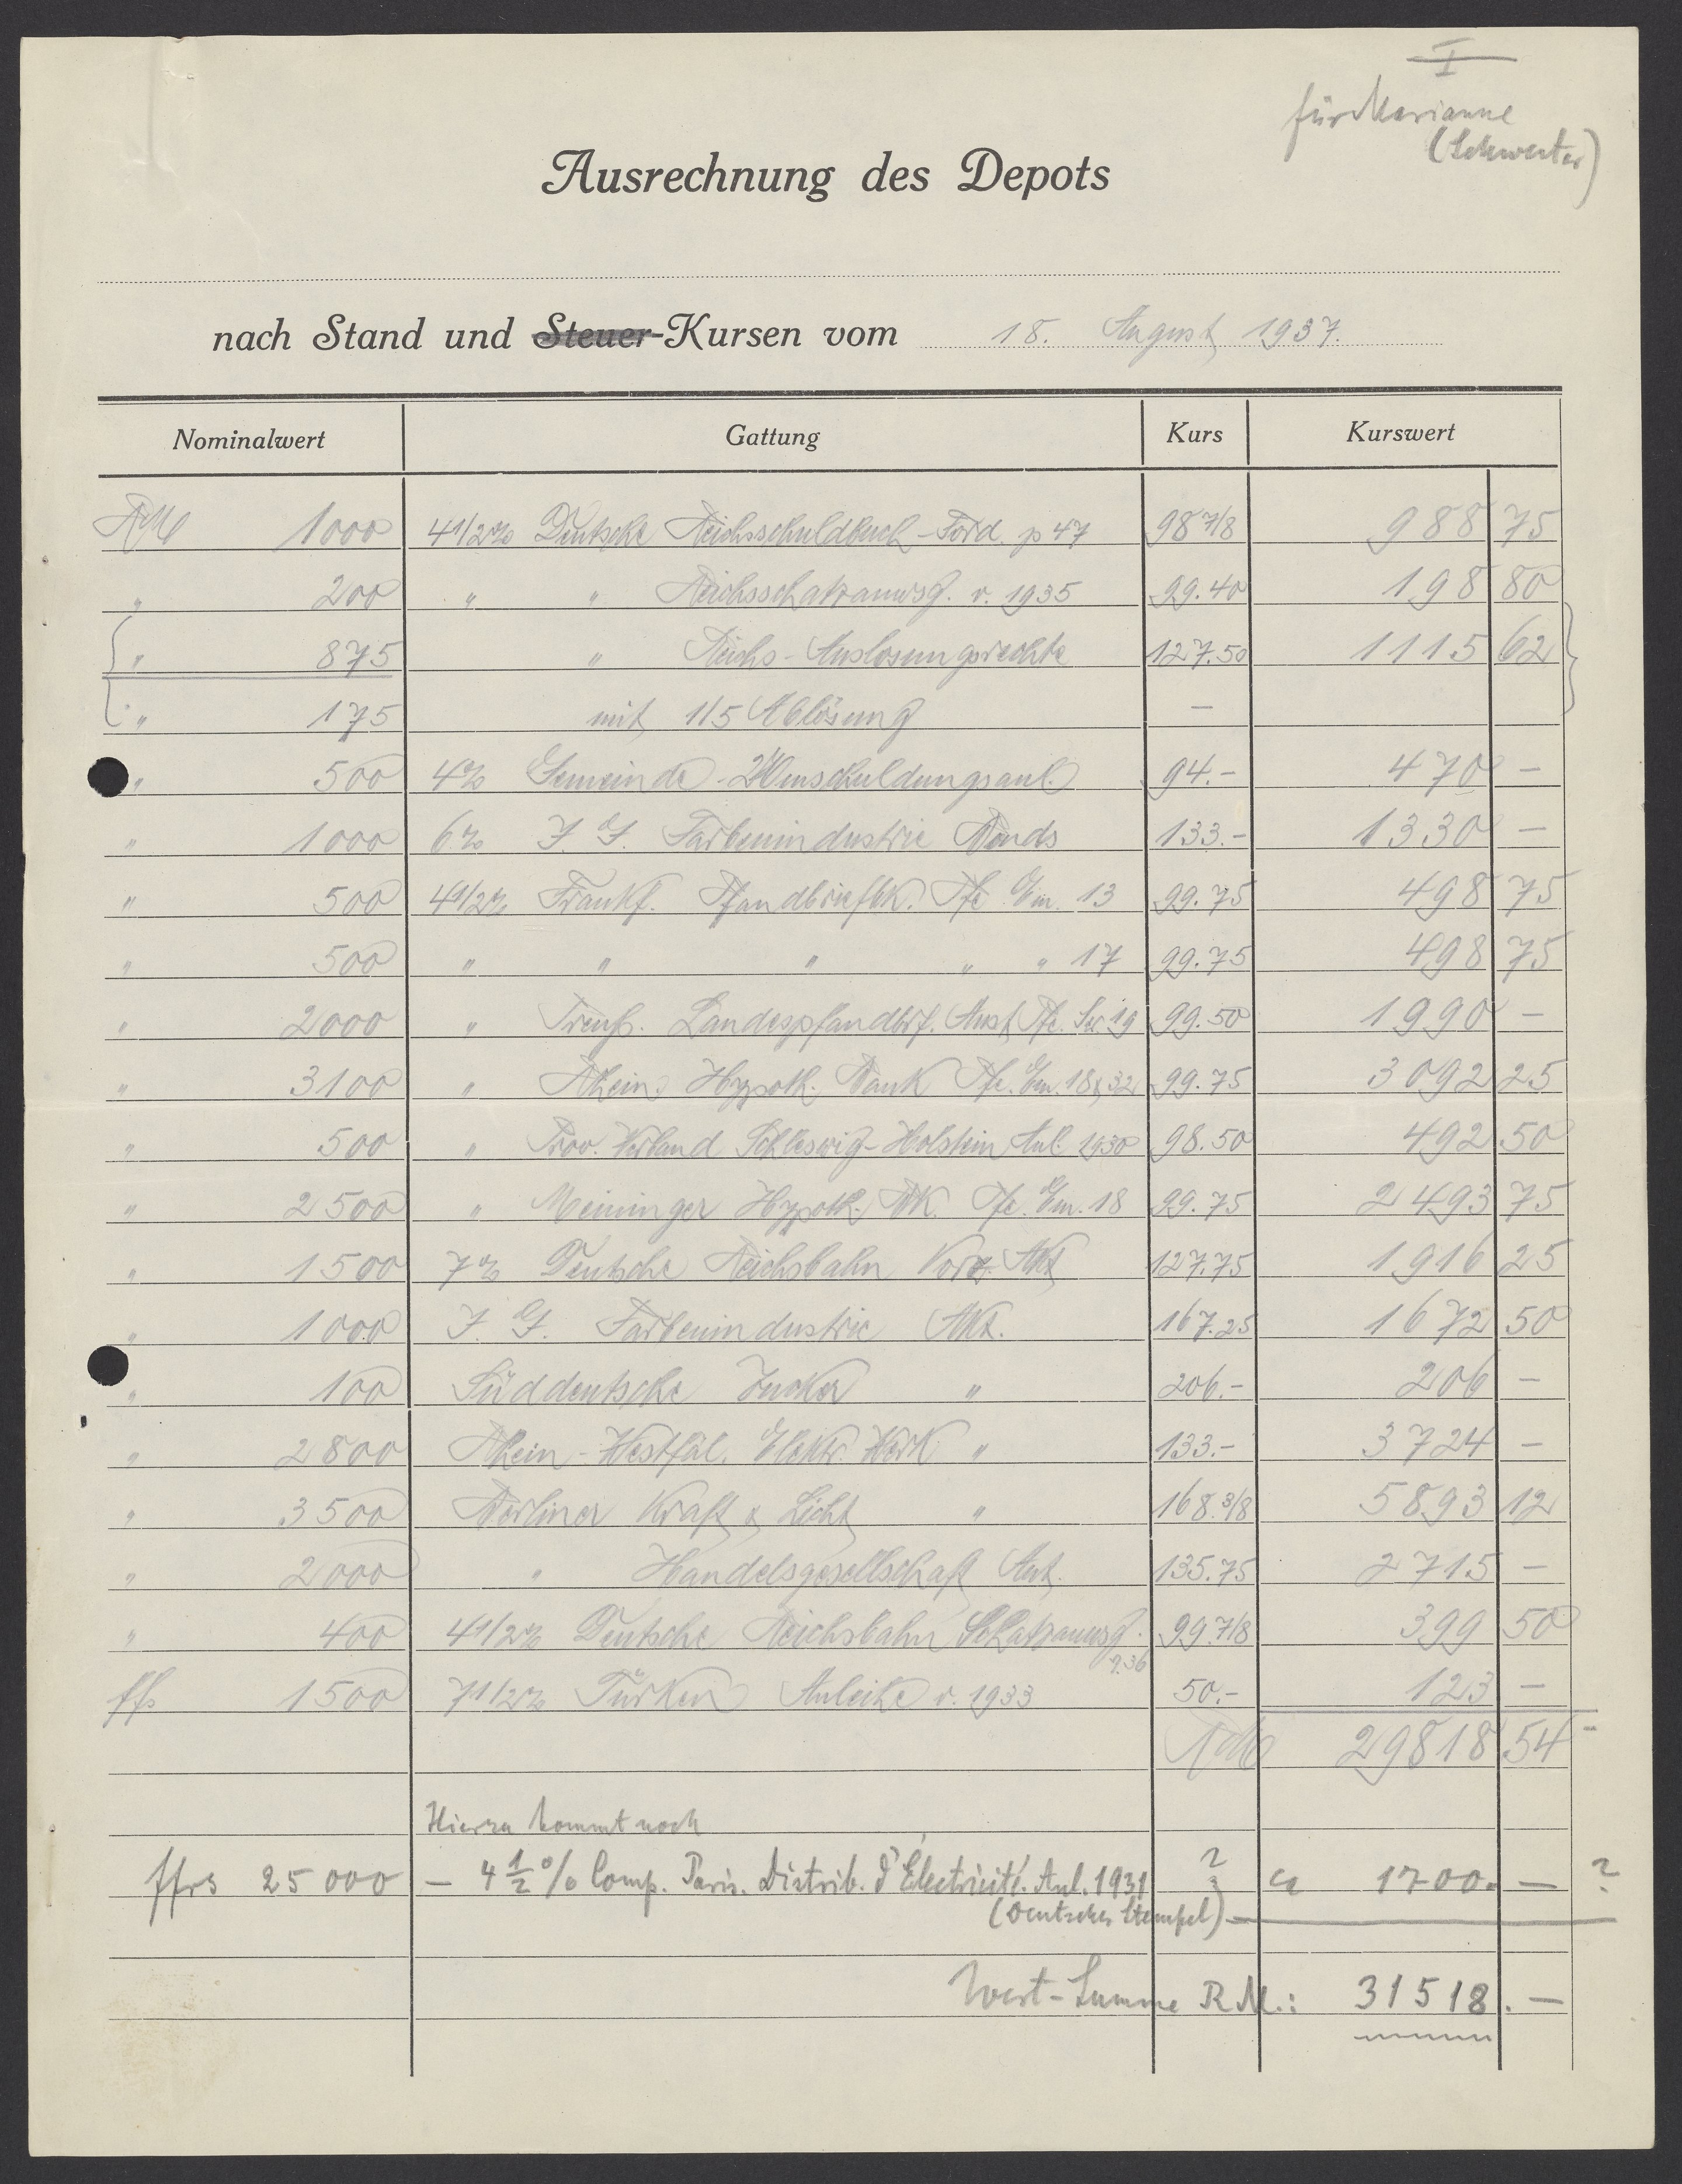 I
für Marianne
(Schwester)
Ausrechnung des Depots
nach Stand und Steuer-Kursen vom 18. August 1937.
Nominalwert Gattung Kurs Kurswert
RM 1000 4 1/2% Deutsche Reichsschuldbuch-Ford. p 47 98 7/8 988 75
" 200 " " Reichsschatzanwsg. v. 1935 99.40 198 80
" 875 " Reichs-Auslosungsrechte 127.50 1115 62
" 175 mit 1/5 Ablösung —
" 500 4% Gemeinde-Umschuldungsanl. 94.- 470 —
" 1000 6% I. G. Farbenindustrie Bonds 133.- 1330 —
" 500 4 1/2% Frankf. Pfandbriefbk. Pfe Em. 13 99.75 498 75
" 500 " " " " " 17 99.75 498 75
" 2000 " Preuß. Landespfandbrf. Anst. Pfe. Ser 19 99.50 1990 —
" 3100 " Rhein. Hypoth. Bank Pfe. Em. 18 & 32 99.75 3092 25
" 500 " Prov. Verband Schleswig-Holstein Anl. 1930 98.50 492 50
" 2500 " Meininger Hypoth. Bk. Pfe. Em. 18 99.75 2493 75
" 1500 7% Deutsche Reichsbahn Vorz. Akt 127.75 1916 25
" 1000 I. G. Farbenindustrie Akt. 167.25 1672 50
" 100 Süddeutsche Zucker " 206.- 206 —
" 2800 Rhein-Westfäl. Elektr. Werk " 133.- 3724 —
" 3500 Berliner Kraft & Licht " 168.3/8 5893 12
" 2000 " Handelsgesellschaft Ant. 135.75 2715 —
" 400 4 1/2% Deutsche Reichsbahn Schatzanwsg. 99.7/8 399 50
v.36
ffs 1500 7 1/2% Türken Anleihe v. 1933 50.- 123 —
RM 29818 54
Hierzu kommt noch
ffrs 25 000 — 4 1/2 % Comp. Paris. Distrib. d'Électricité. Anl. 1931 ? ca 1700. — ?
(Deutscher Stempel) —
Wert-Summe R.M.: 31518. —